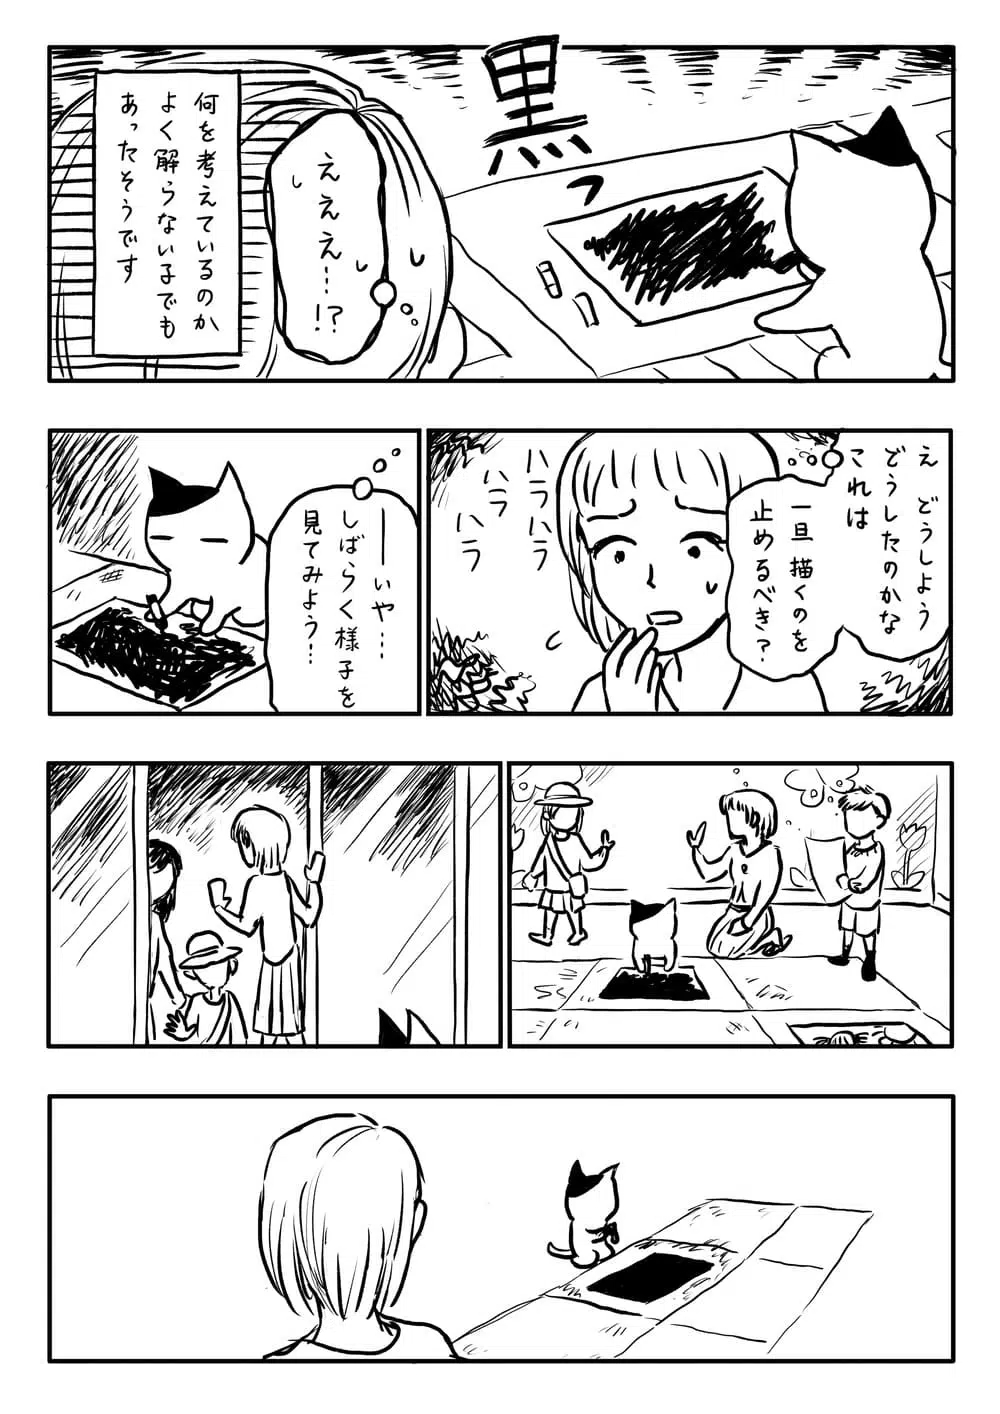 黒ッ
えええ…!?
何を考えているのか
よく解らない子でも
あったそうです
え どうしよう
どうしたのかな
これは
一旦 描くのを
止めるべき?
ハラハラ
ハラ
ハラ
――いや…
しばらく様子を
見てみよう…